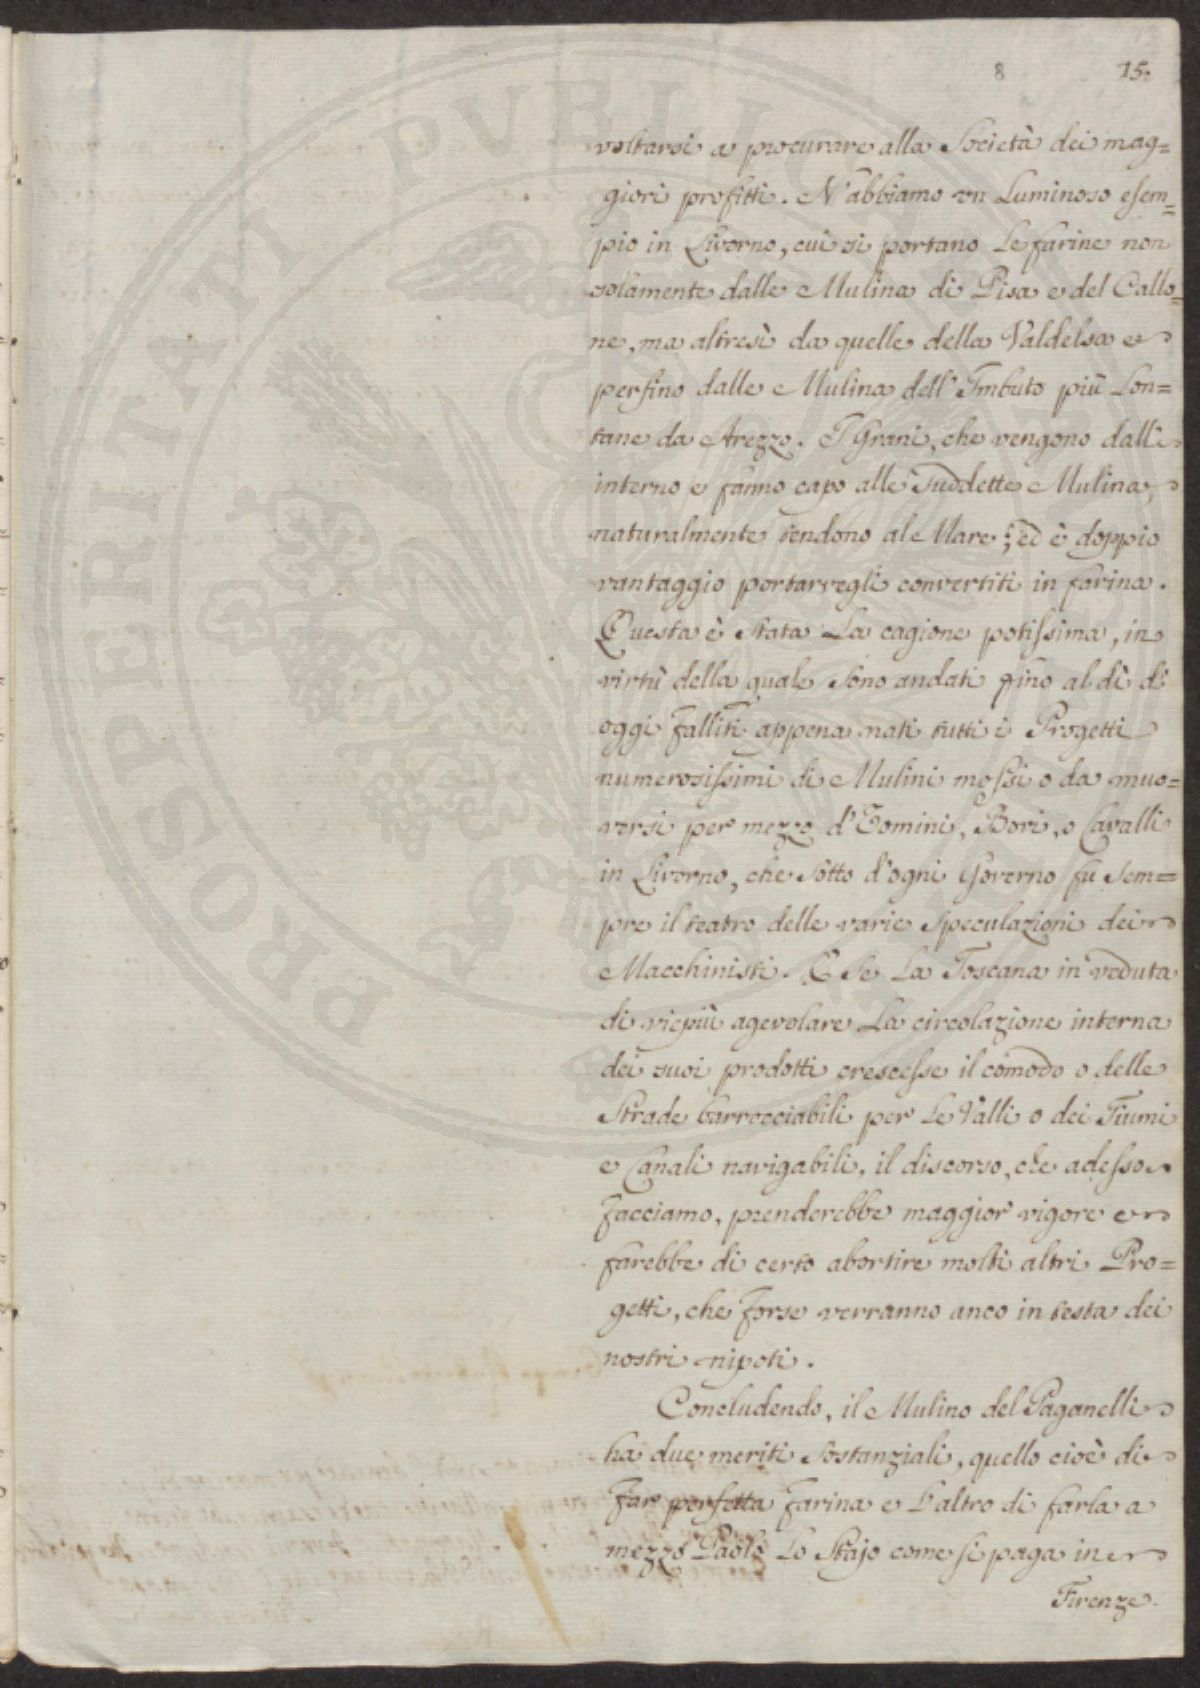 8 15.
voltarsi a procurare alla Società dei mag=
giori profitti. N'abbiamo un Luminoso esem=
pio in Livorno, cui si portano Le farine non
solamente dalle Mulina di Pisa e del Callo=
ne, ma altresì da quelle della Valdelsa e
perfino dalle Mulina dell'Imbuto più Lon=
tane da Arezzo. I Grani, che vengono dall'
interno e fanno capo alle Suddette Mulina,
naturalmente tendono al Mare; ed è doppio
vantaggio portarvegli convertiti in farina.
Questa è Stata La cagione potissima, in
virtù della quale Sono andati fino al dì di
oggi falliti appena nati tutti i Progetti
numerosissimi di Mulini mossi o da muo=
versi per mezzo d'Uomini, Bovi, o Cavalli
in Livorno, che Sotto d'ogni Governo fu Sem=
pre il teatro delle varie Speculazioni dei
Macchinisti. E Se La Toscana in veduta
di viepiù agevolare La circolazione interna
dei suoi prodotti crescesse il comodo o delle
Strade barrocciabili per Le Valli o dei Fiumi
e Canali navigabili, il discorso, che adesso
facciamo, prenderebbe maggior vigore e
farebbe di certo abortire molti altri Pro=
getti, che forse verranno anco in testa dei
nostri nipoti.
Concludendo, il Mulino del Paganelli
ha due meriti Sostanziali, quello cioè di
Far perfetta Farina e L'altro di farla a
mezzo Paolo Lo Stajo come si paga in
Firenze.
PROSPERITATI PUBLICAE